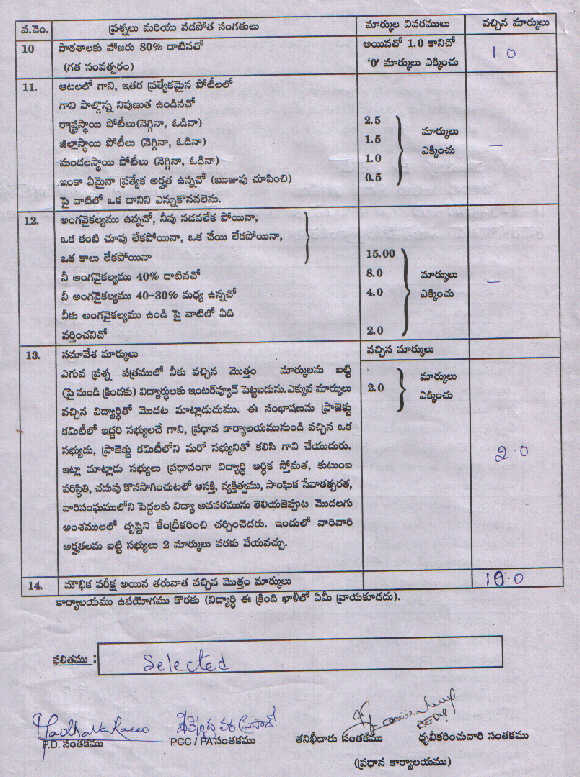 వ.నెం. ప్రశ్నలు మరియు వేడపోత సంగతులు మార్కుల వివరములు వచ్చిన మార్కులు
10 పాఠశాలకు హాజరు 80% దాటినచో అయినచో 1.0 కానిచో 1.0
(గత సంవత్సరం) '0' మార్కులు ఎక్కించు
11. ఆటలలో గాని, ఇతర ప్రత్యేకమైన పోటీలలో
గాని పాల్గొన్న నిపుణుత ఉండినచో
రాష్ట్రస్థాయి పోటీలు(నెగ్గినా, ఓడినా) 2.5 మార్కులు
జిల్లాస్థాయి పోటీలు (నెగ్గినా, ఓడినా) 1.5 ఎక్కించు –
మండలస్థాయి పోటీలు (నెగ్గినా, ఓడినా) 1.0
ఇంకా ఏమైనా ప్రత్యేక అర్హత ఉన్నచో (ఋజువు చూపించి) 0.5
పై వాటిలో ఒక దానిని ఎన్నుకొనవలెను.
12. అంగవైకల్యము ఉన్నచో, నీవు నడవలేక పోయినా,
ఒక కంటి చూపు లేకపోయినా, ఒక చేయి లేకపోయినా,
ఒక కాలు లేకపోయినా 15.00
నీ అంగవైకల్యము 40% దాటినచో 8.0 మార్కులు –
నీ అంగవైకల్యము 40-30% మధ్య ఉన్నచో 4.0 ఎక్కించు
నీకు అంగవైకల్యము ఉండి పై వాటిలో ఏది
వర్తించనిచో 2.0
13. సమావేశ మార్కులు వచ్చిన మార్కులు
ఎగువ ప్రశ్న పత్రములో నీకు వచ్చిన మొత్తం మార్కులను బట్టి 2.0 మార్కులు
(పై నుండి క్రిందకు) విద్యార్థులకు ఇంటర్వ్యూన్ పెట్టబడును. ఎక్కువ మార్కులు ఎక్కించు
వచ్చిన విద్యార్థితో మొదట మాట్లాడుదుము. ఈ సంభాషణను ప్రాజెక్టు
కమిటీలో ఇద్దరి సభ్యులచే గాని, ప్రధాన కార్యాలయమునుండి వచ్చిన ఒక
సభ్యుడు, ప్రాజెక్టు కమిటీలోని మరో సభ్యునితో కలిసి గాని చేయుదురు. 2.0
ఇట్లా మాట్లాడు సభ్యులు ప్రధానంగా విద్యార్థి ఆర్థిక స్తోమత, కుటుంబ
పరిస్థితి, చదువు కొనసాగించుటలో ఆసక్తి, వ్యక్తిత్వము, సాంఘిక సేవాతత్పరత,
వారిసంఘములోని పెద్దలకు విద్యా అవసరమును తెలియజెప్పుట మొదలగు
అంశములలో దృష్టిని కేంద్రీకరించి చర్చించెదరు. ఇందులో వారివారి
అర్హతలను బట్టి సభ్యులు 2 మార్కులు వరకు వేయవచ్చు.
14. మౌఖిక పరీక్ష అయిన తరువాత వచ్చిన మొత్తం మార్కులు
కార్యాలయము ఉపయోగము కొరకు (విద్యార్థి ఈ క్రింది ఖాళీలో ఏమీ వ్రాయకూడదు).
ఫలితము : Selected
P.D. సంతకము PCC / PA సంతకము తనిఖీదారు సంతకము ధృవీకరించువారి సంతకము
(ప్రధాన కార్యాలయం)